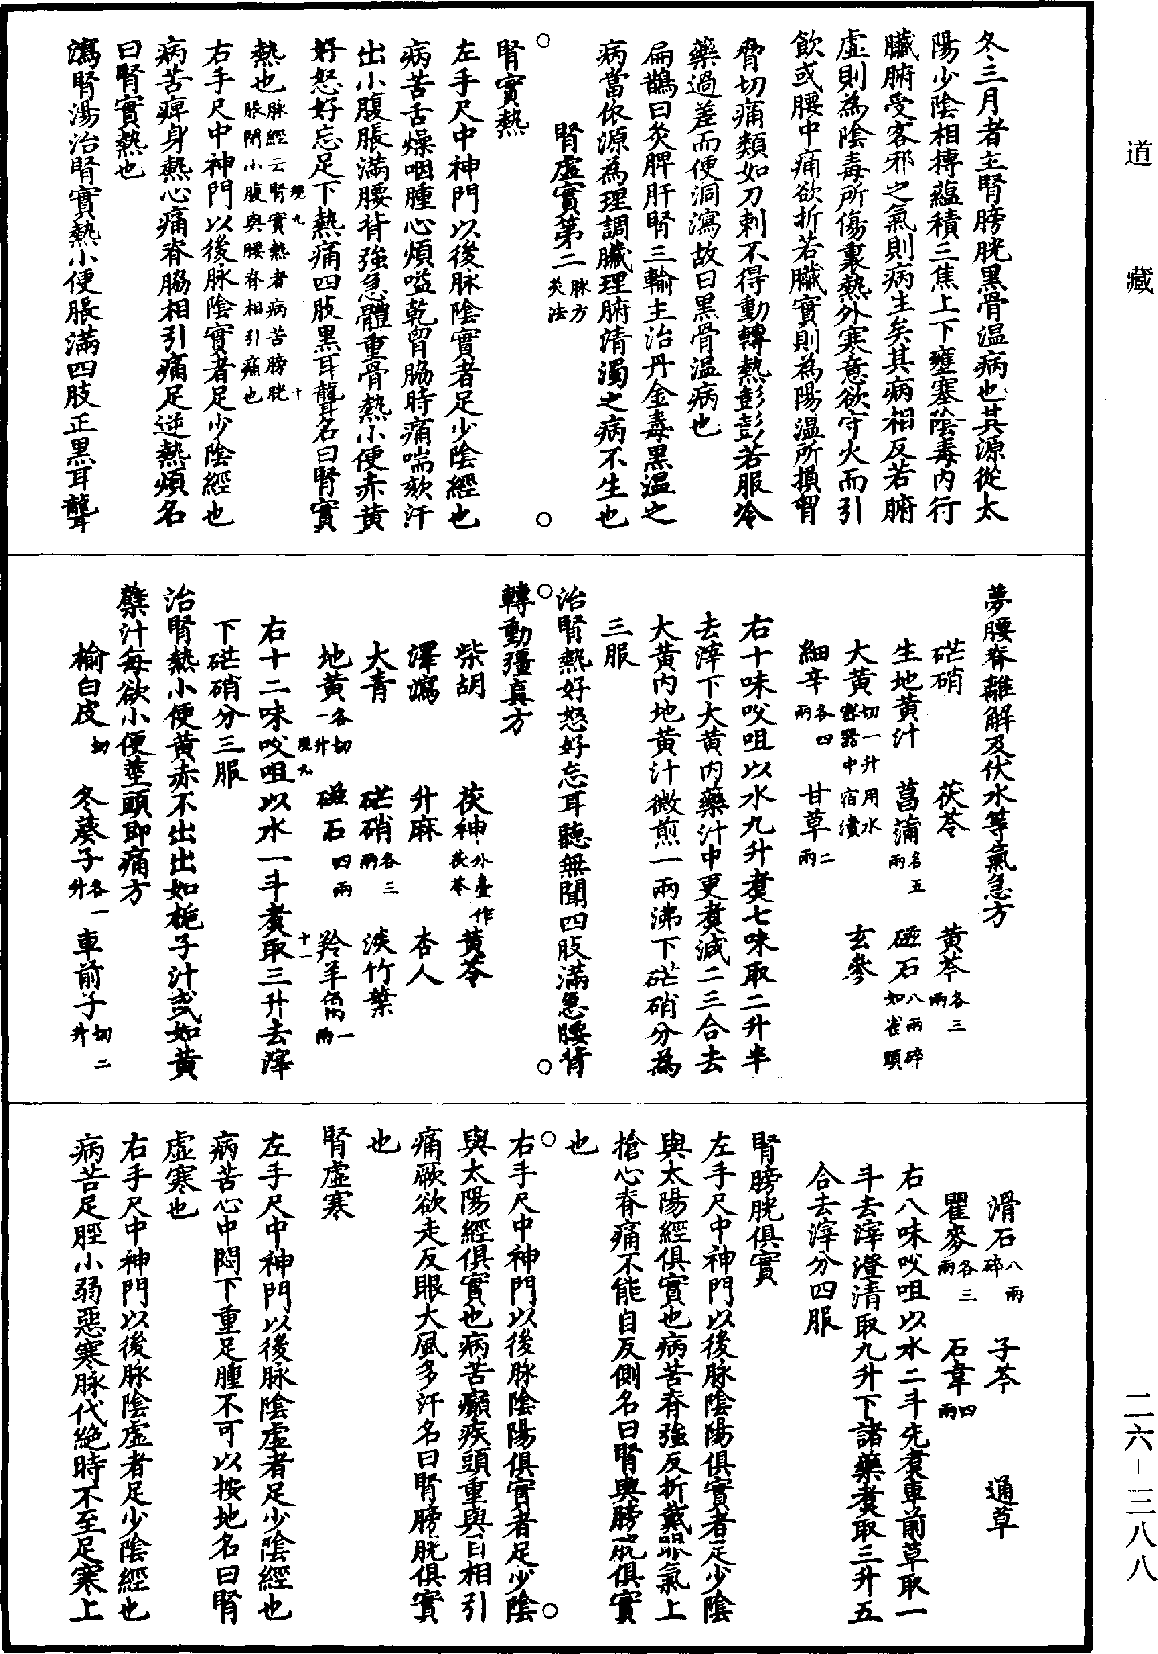 道藏
二六-三八八
冬三月者主腎膀胱黑骨溫病也其源從太
陽少陰相摶蘊積三焦上下壅塞陰毒內行
臟腑受客邪之氣則病生矣其病相反若腑
虛則為陰毒所傷裏熱外寒意欲守火而引
飲或腰中痛欲折若臟實則為陽溫所損胷
脅切痛類如刀刺不得動轉熱彭彭若服冷
藥過差而便洞瀉故曰黑骨溫病也
扁鵲曰灸脾肝腎三輸主治丹金毒黑溫之
病當依源為理調臟理腑清濁之病不生也
腎虛實第二脉方灸法
腎實熱
左手尺中神門以後脉陰實者足少陰經也
病苦舌燥咽腫心煩嗌乾胷脇時痛喘欬汗
出小腹脹滿腰背強急體重骨熱小便赤黄
好怒好忘足下熱痛四肢黑耳聾名曰腎實
熱也脉經云腎實熱者病苦膀胱脹閉小腹與腰脊相引痛也
右手尺中神門以後脉陰實者足少陰經也
病苦痺身熱心痛脊脇相引痛足逆熱煩名
曰腎實熱也
瀉腎湯治腎實熱小便脹滿四肢正黑耳聾
夢腰脊離解及伏水等氣急方
硭硝　茯苓　黄芩各三兩
生地黄汁　菖蒲各五兩　磁石八兩碎如雀頭
大黄切一升用水密器中宿漬　玄參
細辛各四兩　甘草二兩
右十味㕮咀以水九升煑七味取二升半
去滓下大黄內藥汁中更煑減二三合去
大黄內地黄汁微煎一兩沸下硭硝分為
三服
治腎熱好怒好忘耳聽無聞四肢滿急腰背
轉動彊直方
柴胡　茯神外臺作茯苓　黄芩
澤瀉　升麻　杏人
大青　硭硝各三兩　淡竹葉
地黄各切一升　磁石四兩　羚羊角一兩
右十二味㕮咀以水一斗煑取三升去滓
下硭硝分三服
治腎熱小便黄赤不出出如梔子汁或如黄
蘗汁每欲小便莖頭即痛方
榆白皮切　冬葵子各一升　車前子切二升
滑石八兩碎　子芩　通草
瞿麥各三兩　石韋四兩
右八味㕮咀以水二斗先煑車前草取一
斗去滓澄清取九升下諸藥煑取三升五
合去滓分四服
腎膀胱俱實
左手尺中神門以後脉陰陽俱實者足少陰
與太陽經俱實也病苦脊強反折戴眼氣上
搶心脊痛不能自反側名曰腎與膀胱俱實
也
右手尺中神門以後脉陰陽俱實者足少陰
與太陽經俱實也病苦癲疾頭重與目相引
痛厥欲走反眼大風多汗名曰腎膀胱俱實
也
腎虛寒
左手尺中神門以後脉陰虛者足少陰經也
病苦心中悶下重足腫不可以按地名曰腎
虛寒也
右手尺中神門以後脉陰虛者足少陰經也
病苦足脛小弱惡寒脉代絕時不至足寒上